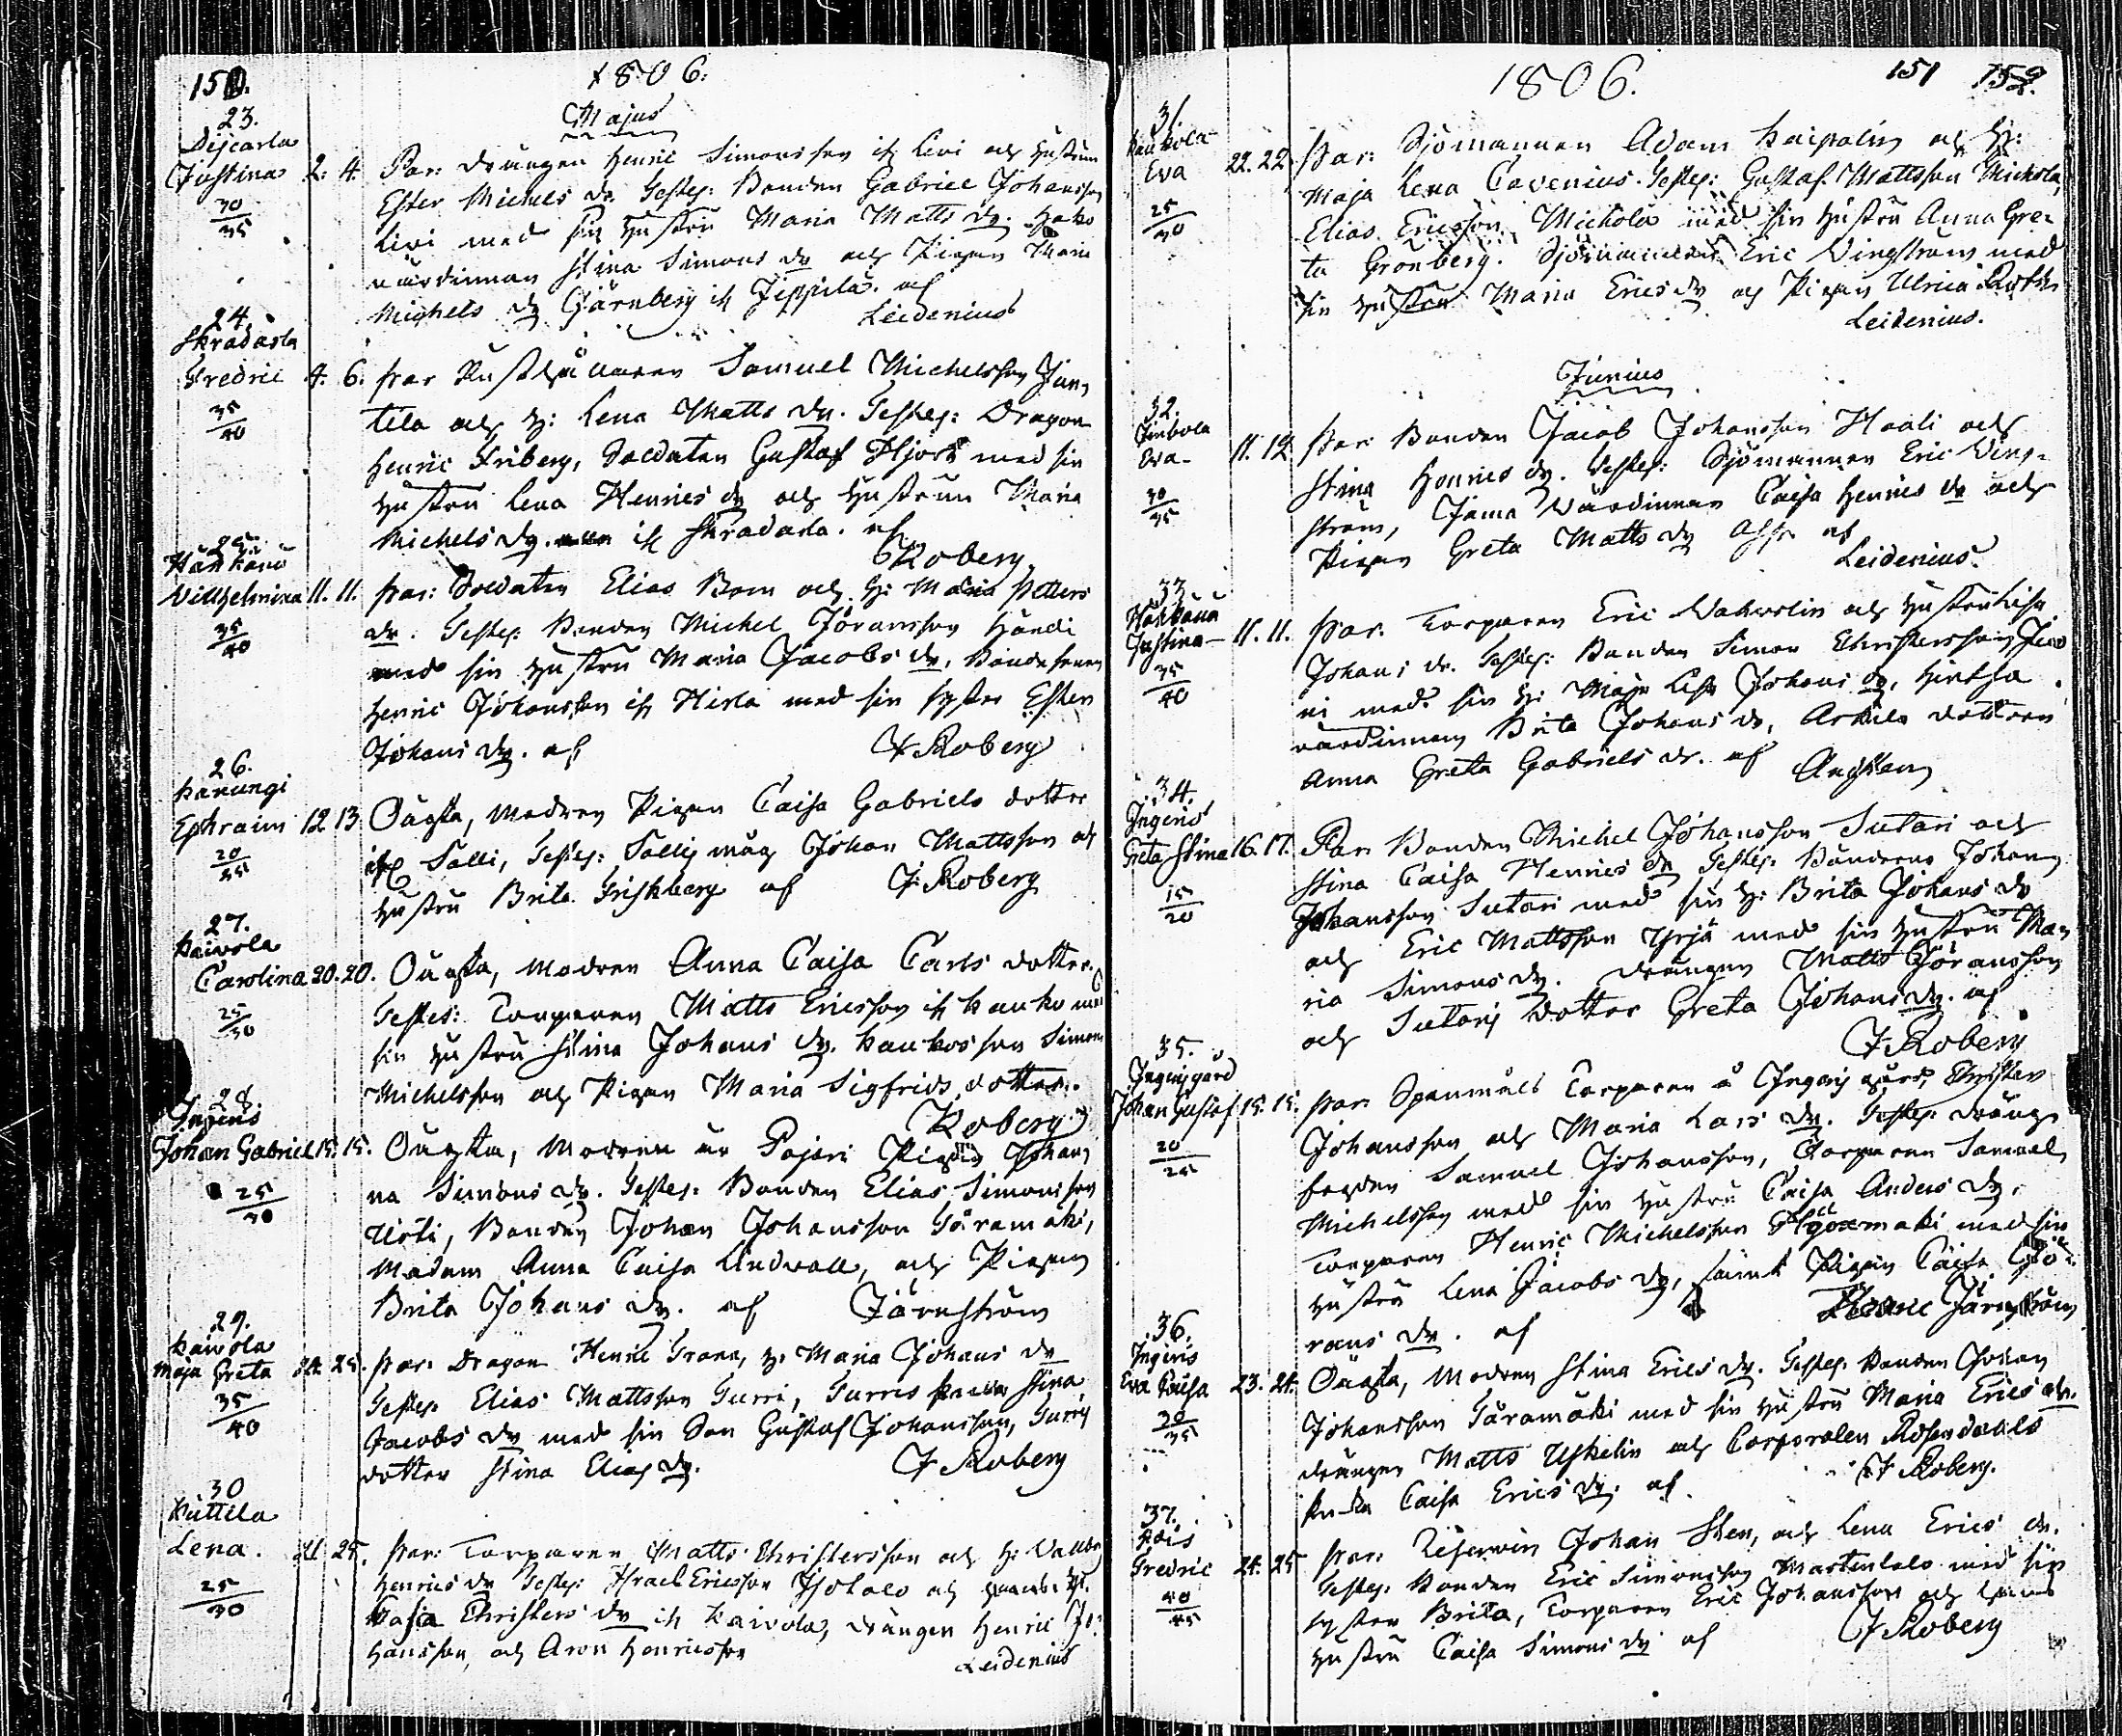 150.
1806.
Majus
23.
Dijcarla
Justina 2. 4. Par: Drängen Henric Simonsson ifr. Kivi och Hustrun
30/35
Ester Michels dr. Testes: Bonden Gabriel Johansson
Kivi med sin Hustru Maria Matts dr. Hako
värdinnan Stina Simons dr och Pigan Maria
Michels dr Järnberg ifr Jeppila. af
Leidenius
24.
Skradarla
Fredric 4. 6. Par Rusthållaren Samuel Michelsson Jun
35/40
tila och H: Lena Matts dr. Testes: Dragon
Henric Friberg, Soldaten Gustaf Hjort med sin
Hustru Lena Henrics dr och Hustrun Maria
Michels dr. ifr Skradarla. af
Roberg
25.
Vilhelmina 11. 11. Par: Soldaten Elias Bom och H: Maria Petters
35/40
dr. Testes: Bonden Michel Jöransson Händi
med sin Hustru Maria Jacobs dr, Bondesonen
Henric Johansson ifr Hirla med sin syster Ester
Johans dr. af
J. Roberg
26.
Kanungi
Ephraim 12 13 Oägta, Modren Pigan Caisa Gabriels dotter
20/25
ifr Salli, Testes: Sallis måg Johan Mattsson och
Hustru Brita Friskberg af J. Roberg
27.
Kaivola
Carolina 20. 20. Oägta, Modren Anna Caisa Carls dotter.
25/30
Testes: Torparen Matts Ericsson ifr Kauko med
sin Hustru Stina Johans dr. Kaukos son Simon
Michelsson och Pigan Maria Sigfrids dotter.
Roberg
28.
Ingeris
Johan Gabriel 15. 15. Oägta, Modren är Pajari Pigan Johan
25/30
na Simons dr. Testes: Bonden Elias Simonsson
Uoti, Bonden Johan Johansson Säramäki,
Madam Anna Caisa Lindvall, och Pigan
Brita Johans dr. af Järnström
29.
Kaivola
Maja Greta 24. 25. Par: Dragon Henric Grana, H: Maria Johans dr
35/40
Testes: Elias Mattsson Surri, Surris Stina
Jacobs dr med sin Son Gustaf Johansson, Surris
dotter Stina Elias dr.
J. Roberg
30
Kuttila
Lena. 21 25. Par: Torparen Matts Christersson och H: Valborg
25/30
Henrics dr Testes: Israel Ericsson Isotalo och
Caisa Christers dr ifr Kaivola, Drängen Henric Jo-
hansson, och Aron Henricsson
Leidenius
1806.
151 152.
31.
Kaukola
Eva 22. 22. Par: Sjömannen Adam Kaipalin och H:
25/30
Maja Lena Cavenius. Testes: Gustaf Mattsson Mickola,
Elias Ericsson Mickola med sin Hustru Anna Gre-
ta Grönberg. Sjömannen Eric Vingström med
sin Hustru Maria Erics dr och Pigan Ulrica Roth
Leidenius.
Junius
32.
Junkola
Eva- 11. 12 Par: Bonden Jacob Johansson Haali och
30/35
Stina Henrics dr. Testes: Sjömannen Eric Ving-
ström, Jama Värdinnan Caisa Henrics dr och
Pigan Greta Matts dr af
Leidenius.
33.
Justina- 11. 11. Par: Torparen Eric Vahvelin och Hustru Lisa
35/40
Johans dr. Testes: Bonden Simon Christersson
ni med sin H: Maja Lisa Johans dr, Hintsa
värdinnan Brita Johans dr, Arkila dottren
Anna Greta Gabriels dr. af
34.
Ingeris
Greta Stina 16. 17. Par: Bonden Michel Johansson Sutari och
15/20
Stina Caisa Henrics dr Testes: Bönderne Johan
Johansson Sutari med sin H: Brita Johans dr
och Eric Mattsson Yrjä med sin Hustru Ma-
ria Simons dr. Drängen Matts Jöransson
och Sutaris dotter Greta Johans dr. af
J. Roberg
35.
Ingerisgård
Johan Gustaf 15. 15. Par: Spanmåls Torparen å Ingeris gård, Christer
20/25
Johansson och Maria Lars dr. Testes: Dräng-
fogden Samuel Johansson, Torparen Samuel
Michelsson med sin Hustru Caisa Anders dr,
Torparen Henric Michelsson med sin
Hustru Lena Jacobs dr, samt Pigan Caisa Gö-
rans dr. af Henric Järnström
36.
Ingeris
Eva Caisa 23. 24. Oägta, Modren Stina Erics dr. Testes: Bonden Johan
30/35
Johansson Säramäki med sin Hustru Maria Erics dr.
Drängen Matts Uskelin och Corporalen Rosendahls
Enka Caisa Erics dr. af
J. Roberg.
37.
Kois
Fredric 24. 25 Par: Reserven Johan Sten, och Lena Erics dr.
40/45
Testes: Bonden Eric Simonsson Martentalo med sin
syster Brita, Torparen Eric Johansson och hans
Hustru Caisa Simons dr af
J. Roberg